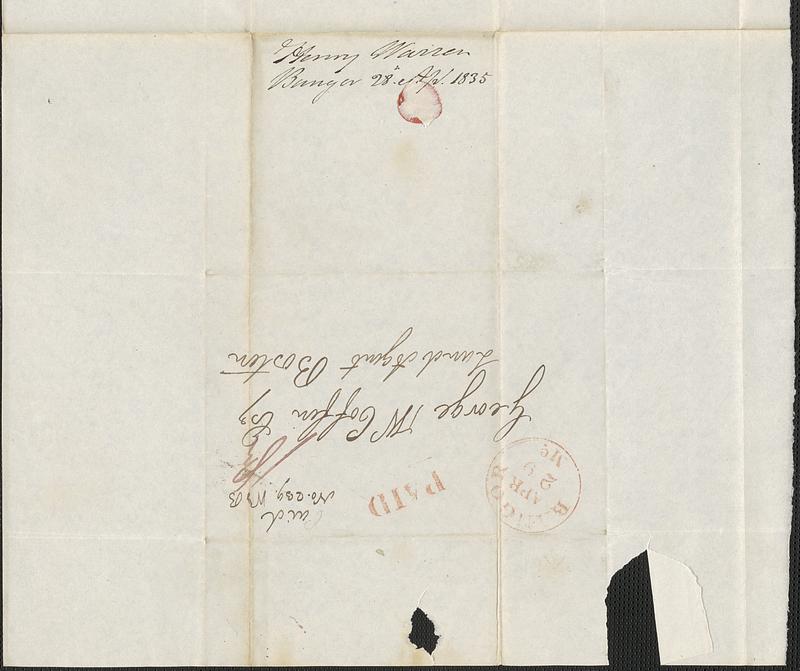 Henry Warren
Bangor 28th Apl. 1835
George W Coffin Esq
Land Agent Boston
Paid
PAID
BANGOR
APR
29
Me